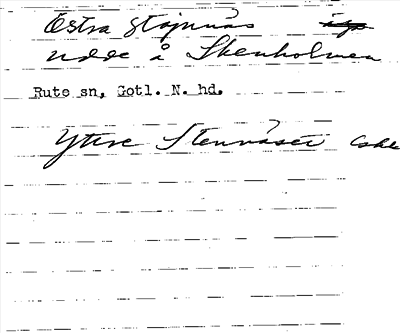 Östra Stajnnäs
udde å Skenholmen
Rute sn, Gotl. N. hd.
Yttre Stennäset